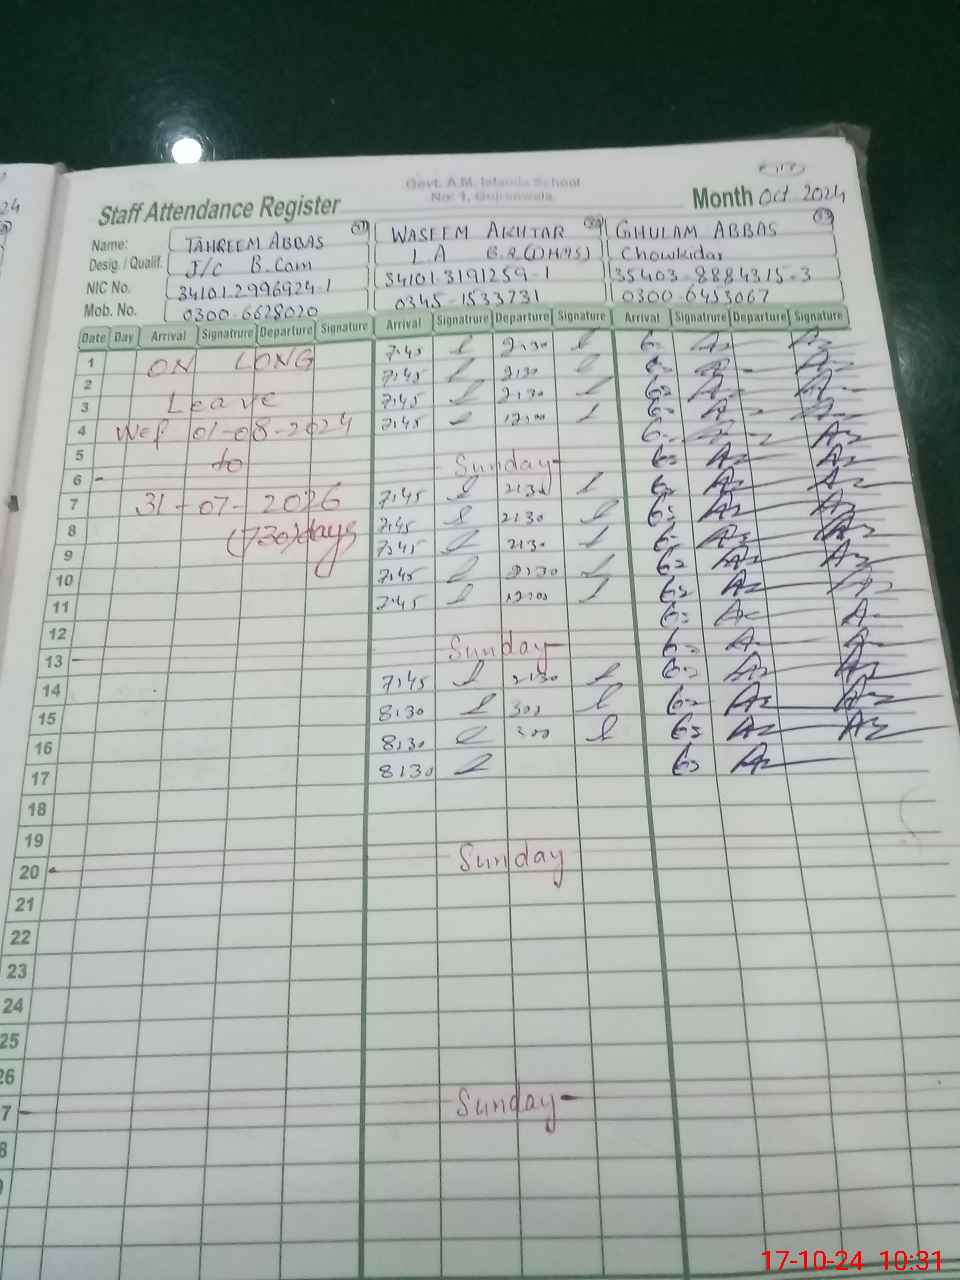 24
Govt. A.M. Islamia School
No: 1, Gujranwala.
Staff Attendance Register Month Oct 2024
Name: TAHREEM ABBAS WASEEM AKHTAR GHULAM ABBAS
Desig. / Qualif. J/C B.Com L A B.A (DHMS) Chowkidar
NIC No. 34101.2996924-1 34101-3191259-1 35403-8884315-3
Mob. No. 0300-6628020 0345-1533731 0300-6453067
Date Day Arrival Signatrure Departure Signature Arrival Signatrure Departure Signature Arrival Signatrure Departure Signature
1 ON LONG 7:45 2:30
2 7:45 2:30
3 Leave 7:45 2:30
4 Wef 01-08-2024 7:45 12:00
5 to
6 Sunday
7 31-07-2026 7:45 2:30
8 (730) days 7:45 2:30
9 7:45 2:30
10 7:45 2:30
11 7:45 12:00
12
13 Sunday
14 7:45 2:30
15 8:30 300
16 8:30 300
17 8:30
18
19
20 Sunday
21
22
23
24
25
26
7 Sunday
8
17-10-24 10:31